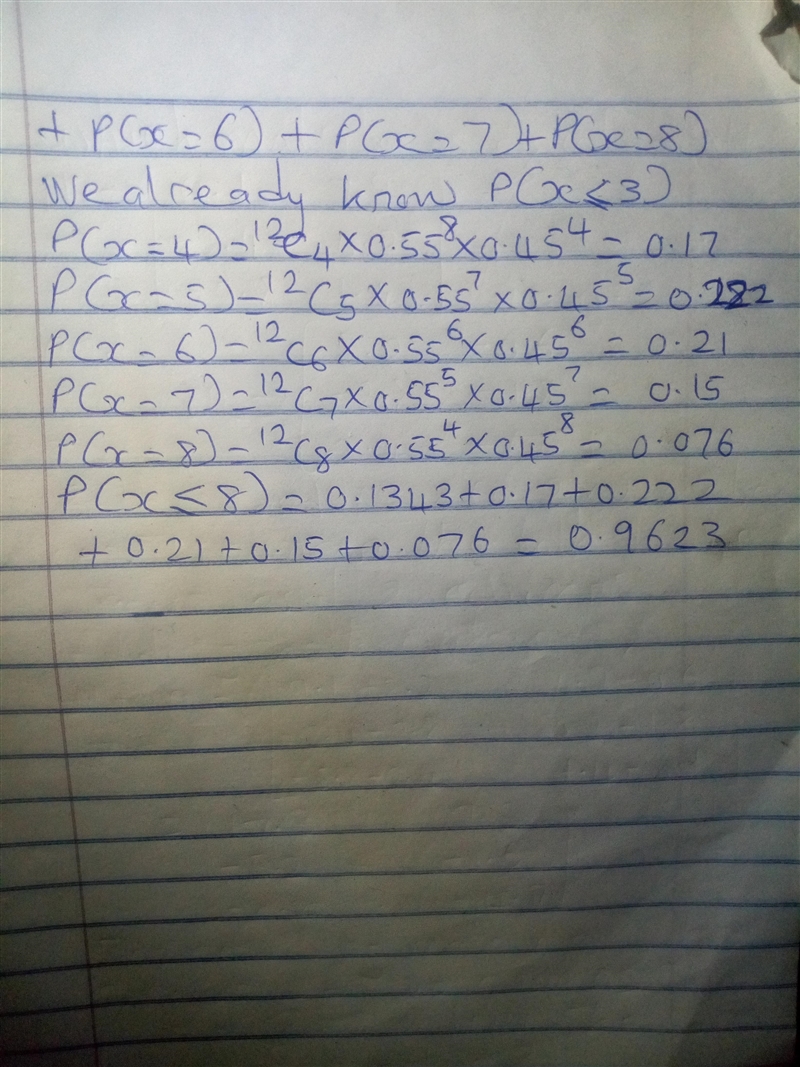 + P(x=6) + P(x=7)+P(x=8)
We already know P(x≤3)
P(x=4)=¹²C₄×0.55⁸×0.45⁴= 0.17
P(x=5)=¹²C₅×0.55⁷×0.45⁵=0.222
P(x=6)=¹²C₆×0.55⁶×0.45⁶ = 0.21
P(x=7)=¹²C₇×0.55⁵×0.45⁷= 0.15
P(x=8)=¹²C₈×0.55⁴×0.45⁸= 0.076
P(x≤8)=0.1343+0.17+0.222
+ 0.21+0.15+0.076 = 0.9623